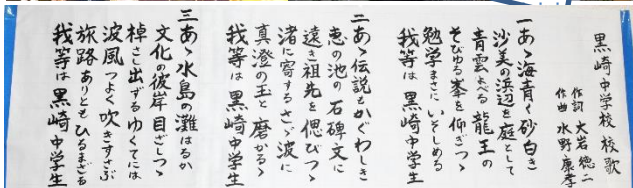 黒崎中学校 校歌
作詞 大岩徳二
作曲 水野康孝
一 あゝ海青く砂白き
沙美の浜辺を庭として
青雲よべる龍王の
そびゆる峯を仰ぎつゝ
勉学まさにいそしめる
我等は 黒崎中学生
二 あゝ伝説もかぐわしき
恵の池の石碑文に
遠き祖先を偲びつゝ
渚に寄するさゞ波に
真澄の玉と磨かるゝ
我等は 黒崎中学生
三 あゝ水島の灘はるか
文化の彼岸目ざしつゝ
棹さし出ずるゆくてには
波風つよく吹きすさぶ
旅路ありともひるまざる
我等は 黒崎中学生